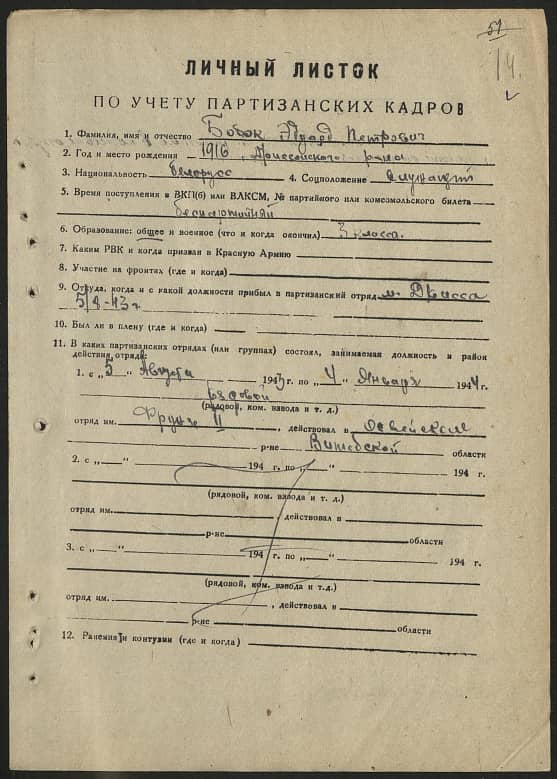 51
14.
ЛИЧНЫЙ ЛИСТОК
ПО УЧЕТУ ПАРТИЗАНСКИХ КАДРОВ
1. Фамилия, имя и отчество Бобок Эдуард Петрович
2. Год и место рождения 1916, Дриссенского р-на
3. Национальность белорусс 4. Соцположение служащий
5. Время поступления в ВКП(б) или ВЛКСМ, № партийного или комсомольского билета
беспартийный
6. Образование: общее и военное (что и когда окончил) 3 класса.
7. Каким РВК и когда призван в Красную Армию
8. Участие на фронтах (где и когда)
9. Откуда, когда и с какой должности прибыл в партизанский отряд м. Дрисса
5/8-43 г
10. Был ли в плену (где и когда)
11. В каких партизанских отрядах (или группах) состоял, занимаемая должность и район
действия отряда:
1. с „5" Августа 1943 г. по „4" Января 1944 г.
рядовой
(рядовой, ком. взвода и т. д.)
отряд им. Фрунзе II, действовал в Освейском
р-не Витебской области
2. с „ " 194 г. по „ " 194 г.
(рядовой, ком. взвода и т. д.)
отряд им. , действовал в
р-не области
3. с „ " 194 г. по „ " 194 г.
(рядовой, ком. взвода и т.д.)
отряд им. , действовал в
р-не области
12. Ранения и контузии (где и когда)